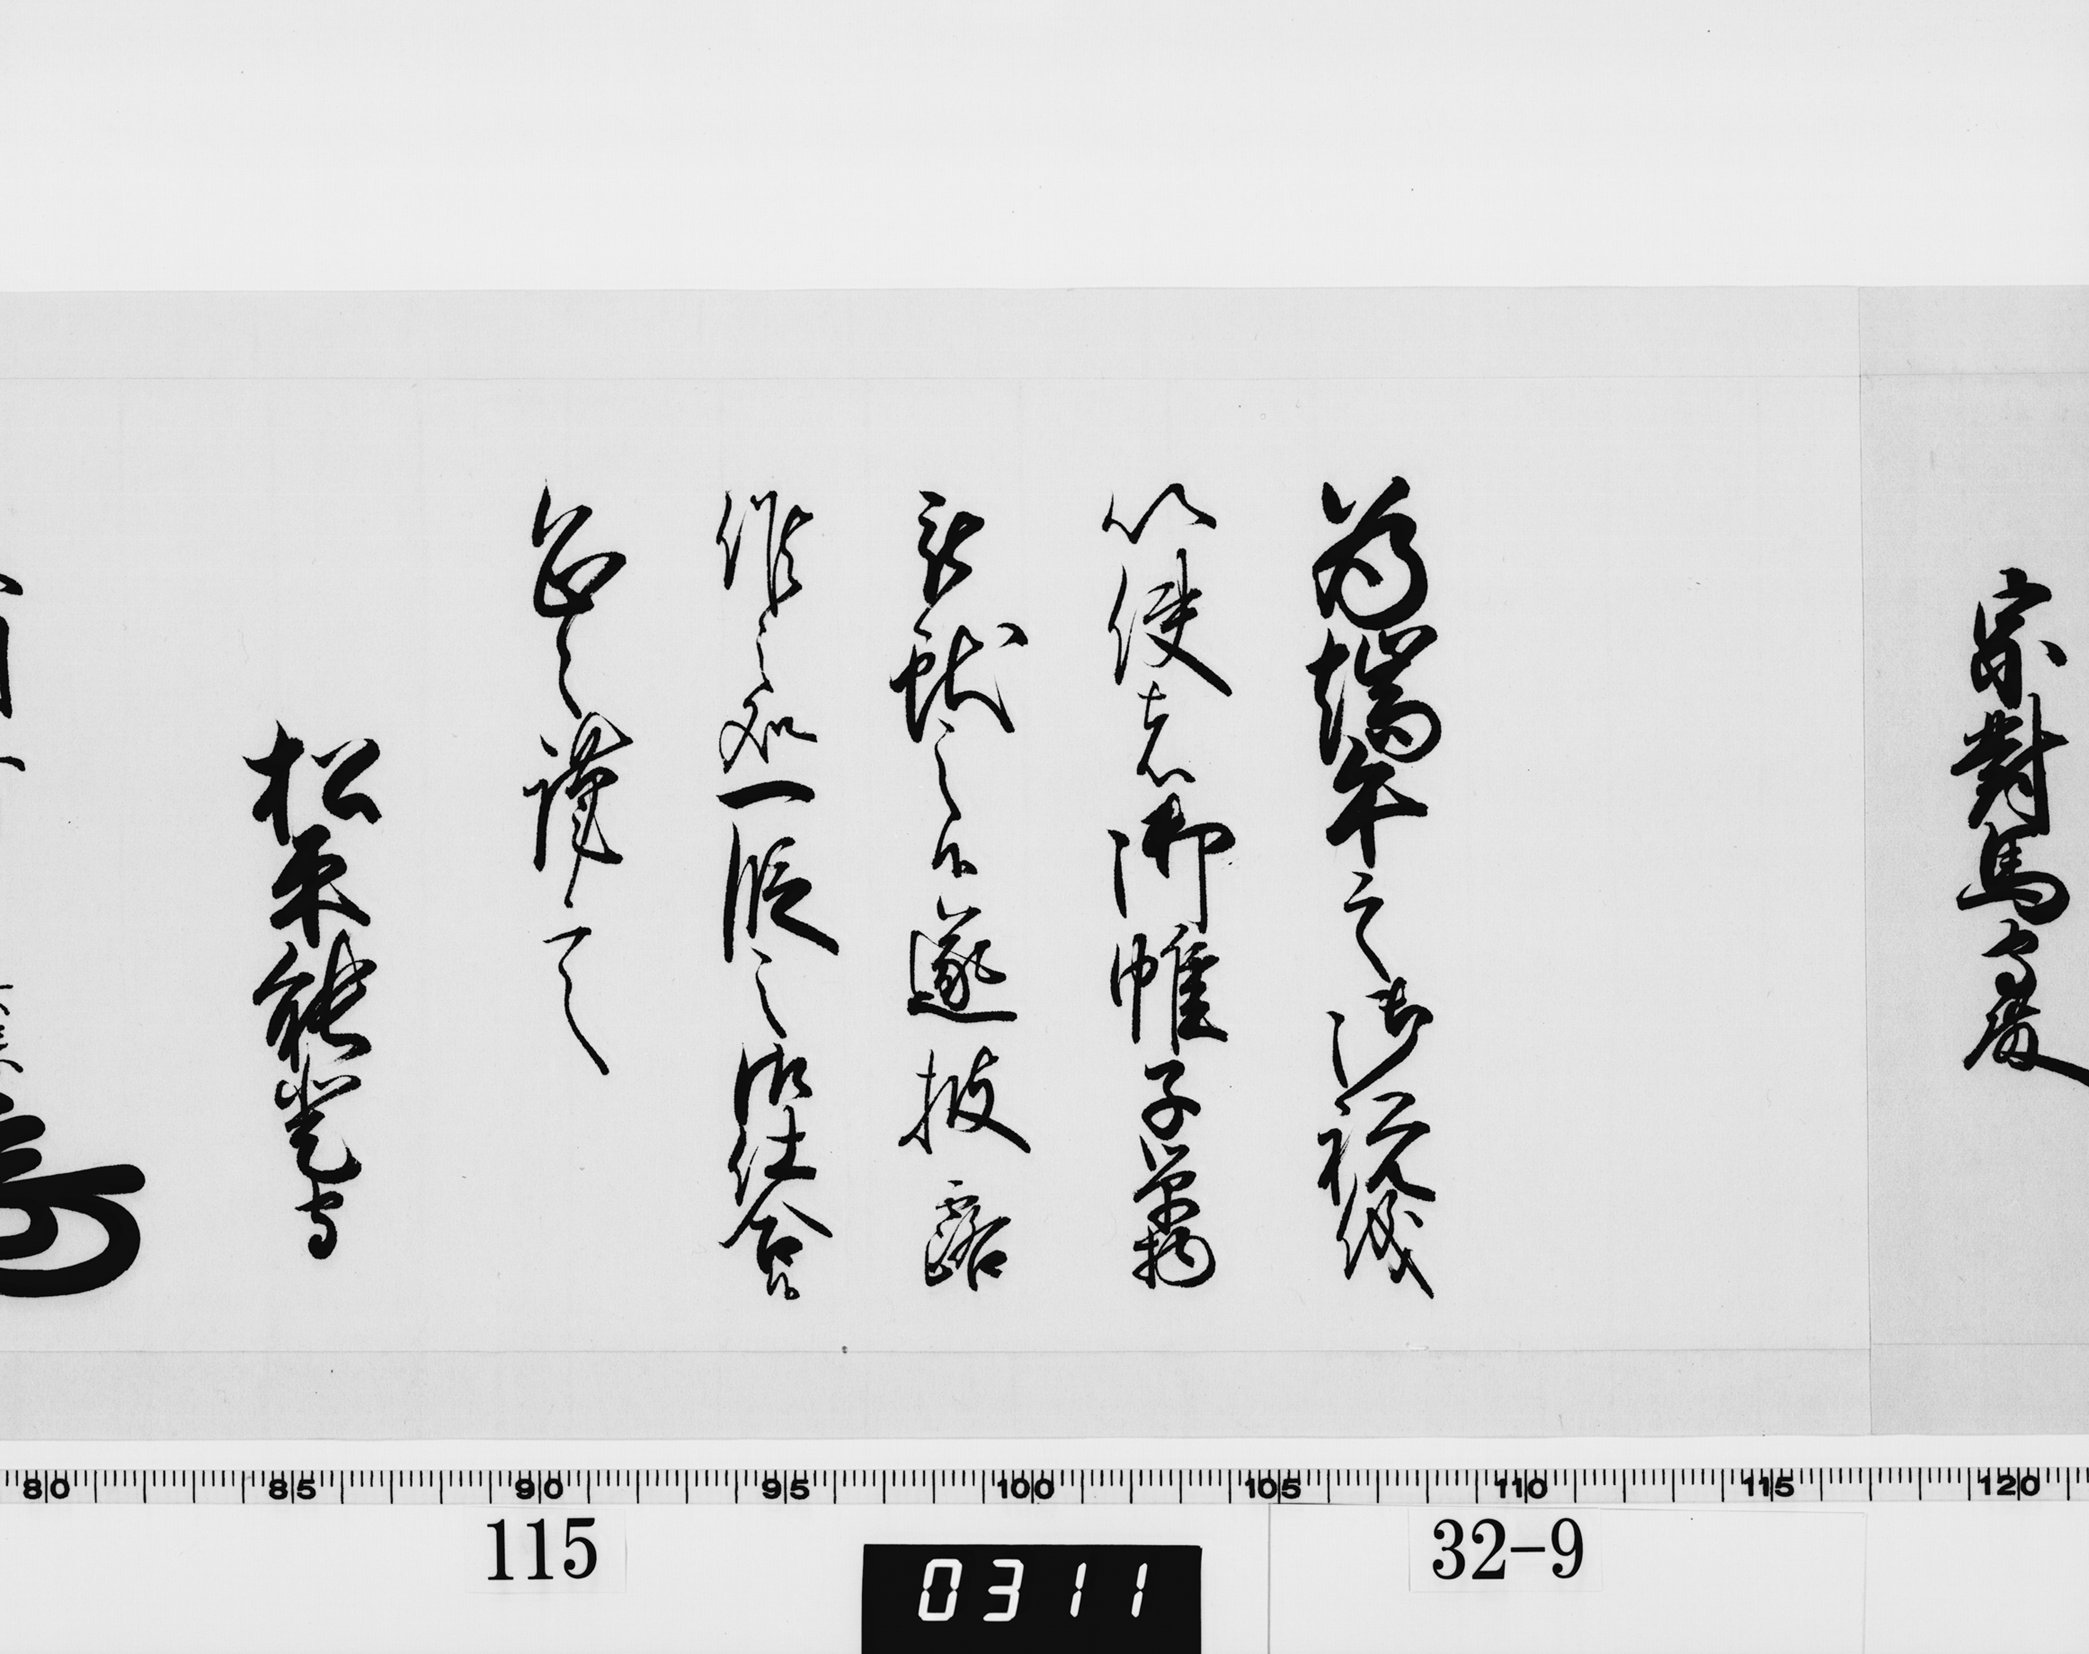 宗對馬守殿
為端午之御祝儀
以使者御帷子単物
被獻之候遂披露
候之処一段之御仕合候
恐々謹言
松平能登守
80 85 90 95 100 105 110 115 120
115
0311
32-9